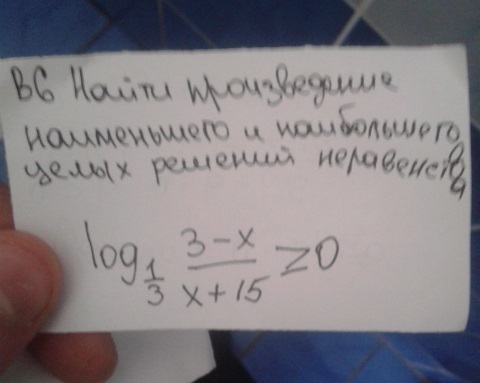 В6 Найти произведение
наименьшего и наибольшего
целых решений неравенства
log_{1/3} (3-x)/(x+15) ≥ 0